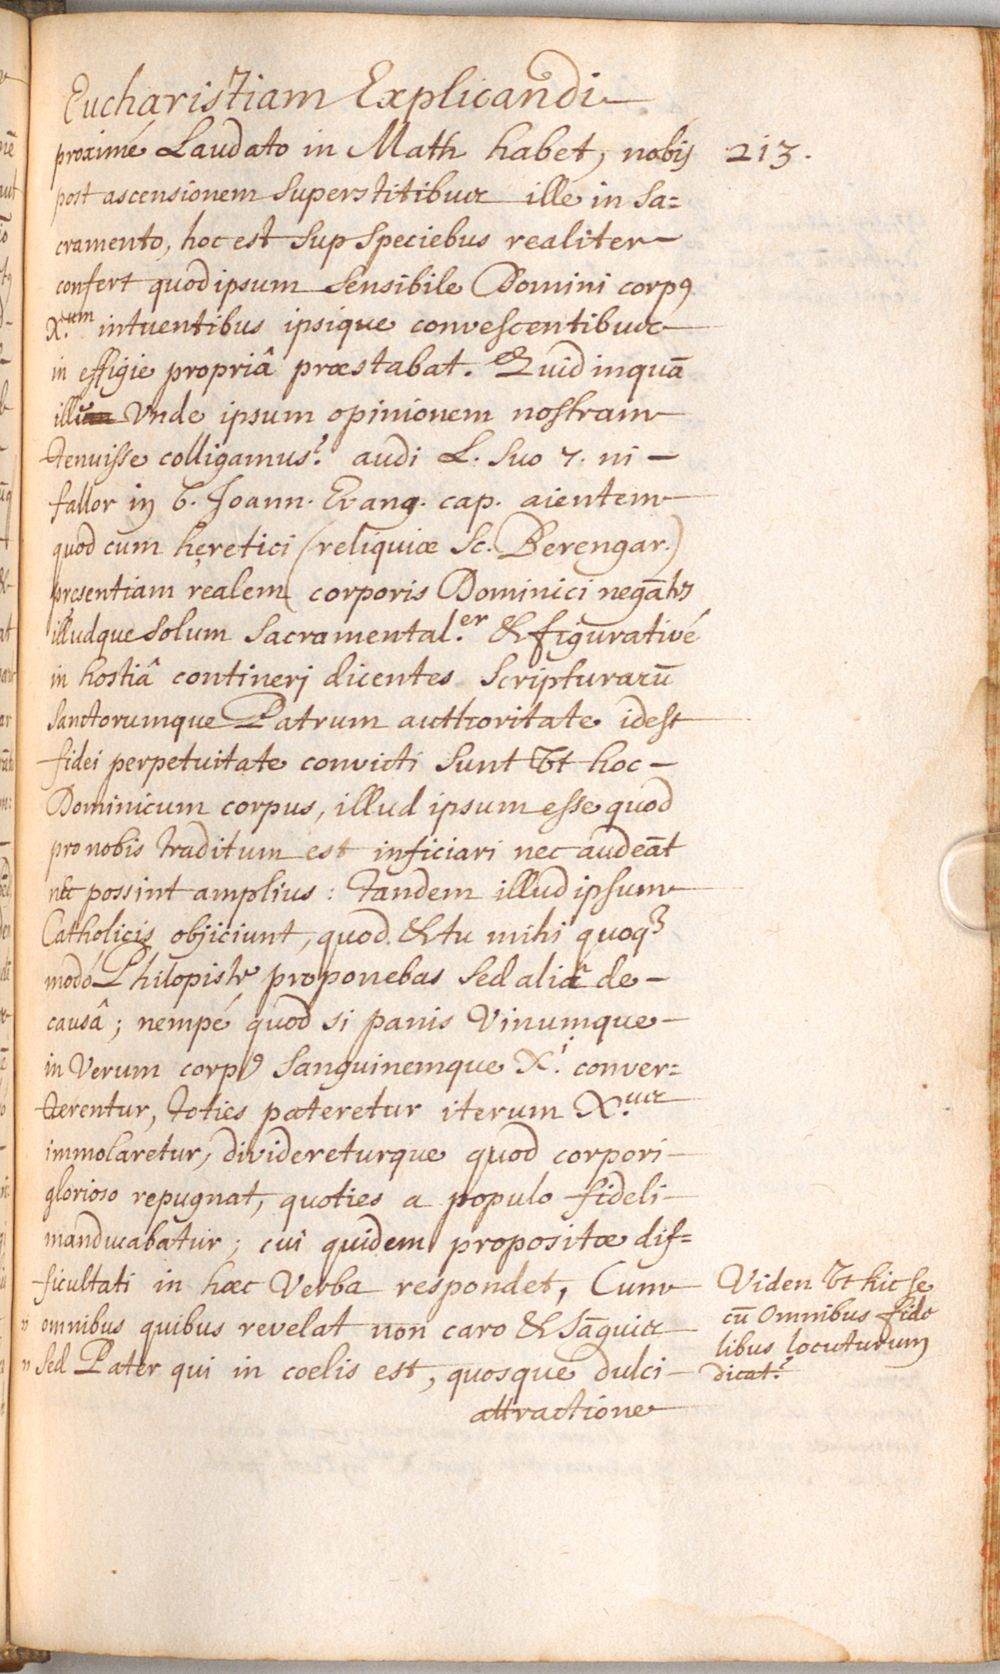 Eucharistiam Explicandi
213.
proximé Laudato in Math habet, nobis
post ascensionem superstitibus ille in sa=
cramento, hoc est sup speciebus realiter
confert quod ipsum sensibile Domini corpꝰ
X.um intuentibus ipsique convescentibus
in effigie propriâ præstabat. Quid inquā
Unde ipsum opinionem nostram
tenuisse colligamus? audi L. suo 7. ni
fallor in 6. Joann. Evang. cap. aientem
quod cum hęretici (reliquiæ Sc. Berengar.)
presentiam realem corporis Dominici negātes
illudque solum sacramental.er & figurativé
in hostiâ contineri dicentes scripturarū
sanctorumque Patrum authoritate idest
fidei perpetuitate convicti sunt Vt hoc
Dominicum corpus, illud ipsum esse quod
pro nobis traditum est inficiari nec audeāt
nec possint amplius: tandem illud ipsum
Catholicis objiciunt, quod & tu mihi quoqꝫ
modó Philopiste proponebas sed aliâ de
causâ; nempé quod si panis Vinumque
in Verum corpꝰ sanguinemque X.i conver=
terentur, toties pateretur iterum X.us
immolaretur, divideretur que quod corpori
glorioso repugnat, quoties a populo fideli
manducabatur; cui quidem propositæ dif=
ficultati in hæc Verba respondet, Cum
omnibus quibus revelat non caro & sāguis
sed Pater qui in coelis est, quosque dulci
attractione
Viden Vt hic se
cū Omnibus fide
libus locuturum
dicat?